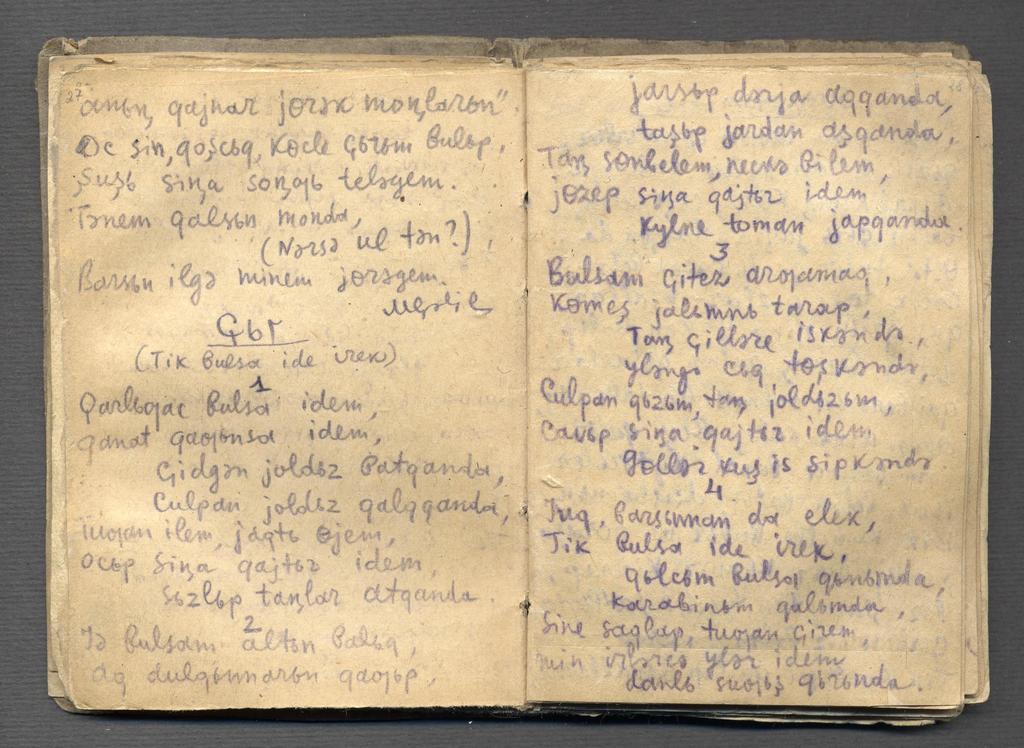 27
anьꞑ, qajnar jɵrək moꞑlarьn".
Oc sin, qoşcьq, kɵcle çьrьm bulьp,
Şuşь siꞑa soꞑƣь teləgem.
Tənem qalsьn monda,
(Nərsə ul tən?),
Barsьn ilgə minem jɵrəgem.
Çьr
(Tik bulsa ide irek)
1
Qarlьƣac bulsa idem,
qanat qaƣьnsa idem,
Çidgən joldьz batqanda,
Culpan joldьz qalqqanda,
tuƣan ilem, jaqtь ɵjem,
ocьp siꞑa qajtьr idem,
sьzlьp taꞑlar atqanda.
2
Jə bulsam altьn balьq,
aq dulqьnnarьn qaƣьp,
28
jarsьp dərja aqqanda,
taşьp jardan aşqanda,
Tan sɵnbelem, neckə bilem,
jɵzep siꞑa qajtьr idem
kylne toman japqanda.
3
Bulsam çitez arƣamaq,
Kɵmeş jalьmnь tarap,
Taꞑ çilləre iskəndə,
yləngə cьq tɵşkəndə,
Culpan qьzьm, taꞑ joldьzьm,
cavьp siꞑa qajtьr idem
gɵllər xuş is sipkəndə.
4
Juq, barsьnnan da elek,
Tik bulsa ide irek,
qьlcьm bulsa qьnьmda,
karabinьm qulьmda,
Sine saqlap, tuƣan çirem,
min irlərcə ylər idem
danlь suƣьş qьrьnda.